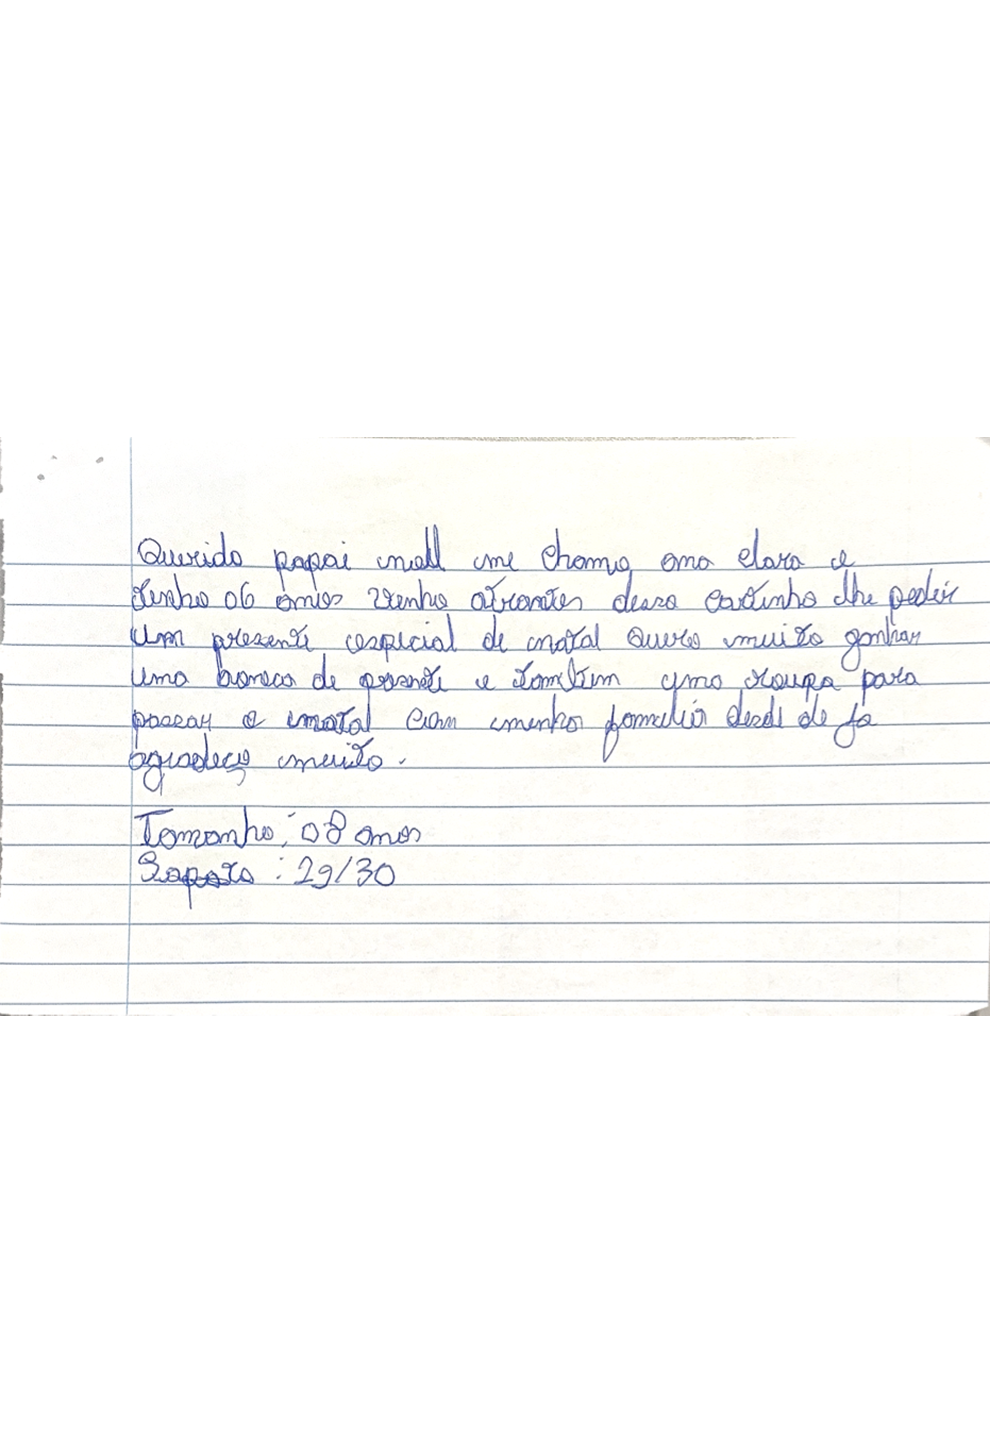 Querido papai noell me chamo ana clara e
tenho 06 anios venho atrantes dessa cartinha lhe pedir
Um presente especial de natal Quero muito ganhar
uma boneca de presente e tambem uma roupa para
passar o natal com minha familir desde de ja
agradeço muito.
Tamanho: 08 anos
Sapato: 29/30